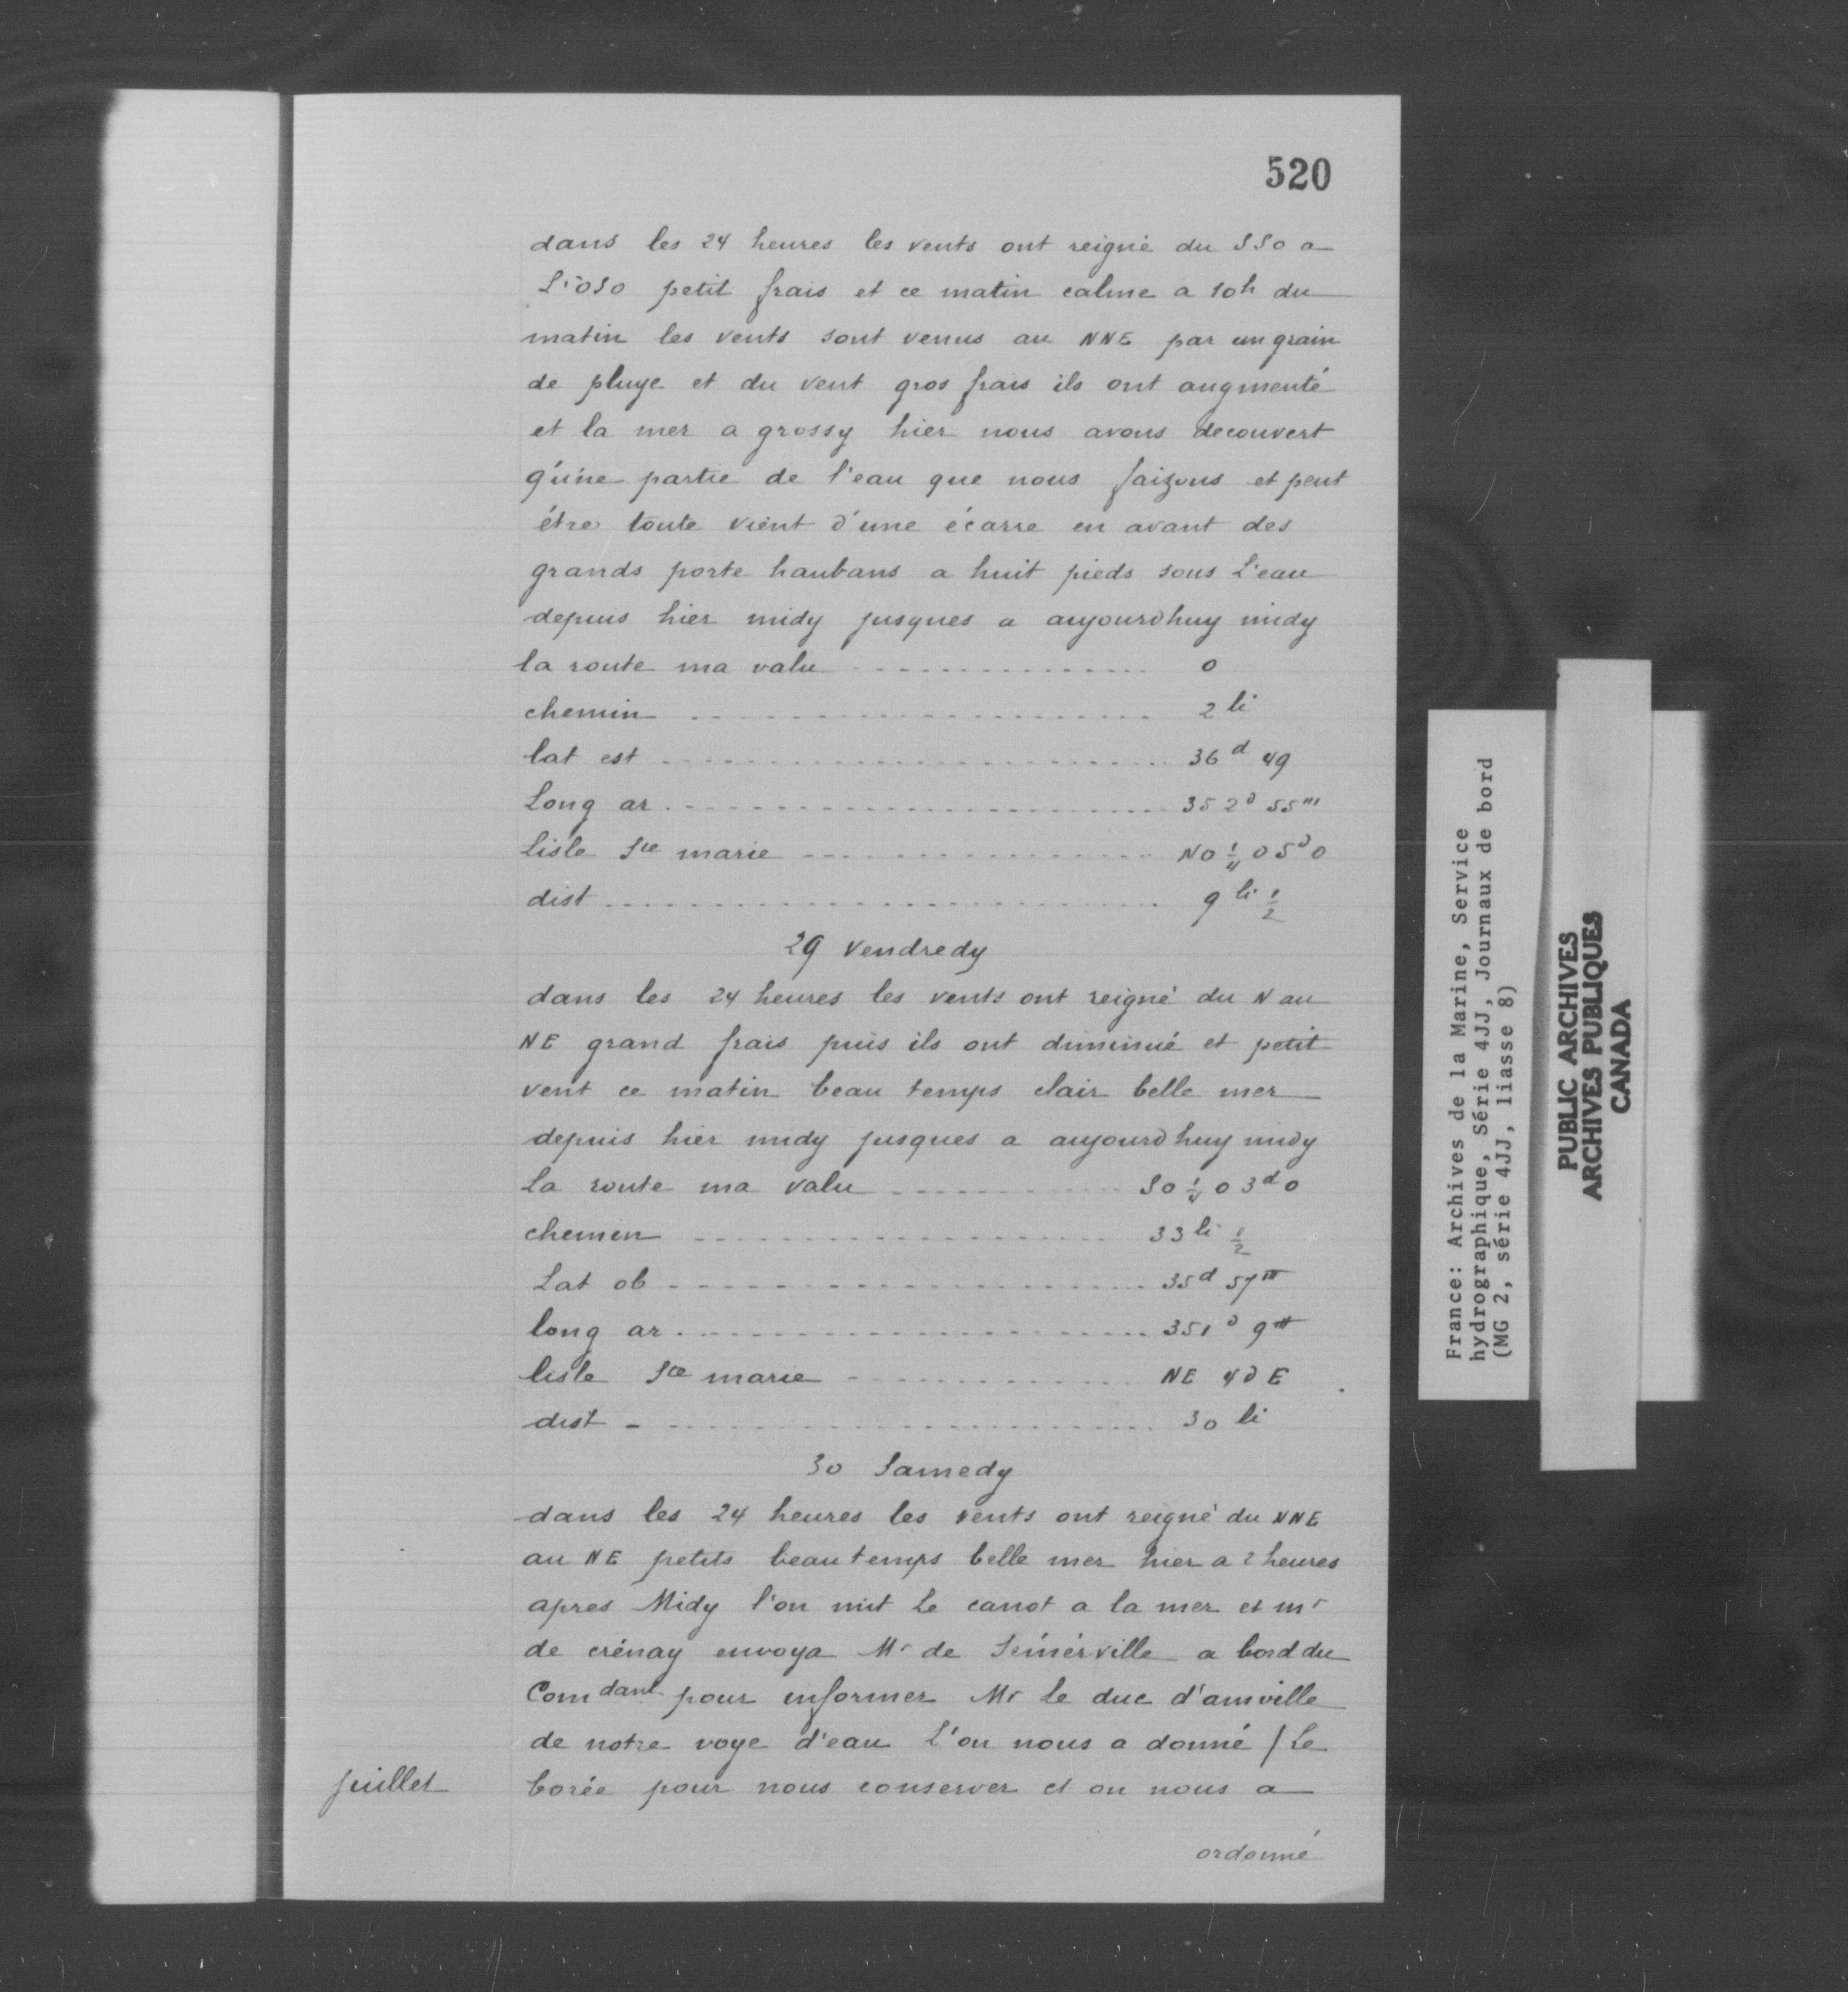 520
dans les 24 heures les vents ont reigné du SSO a
L'OSO petit frais et ce matin calme a 10h du
matin les vents sont venus au NNE par un grain
de pluye et du vent gros frais ils ont augmenté
et la mer a grossy hier nous avons decouvert
q'uine partie de l'eau que nous faizons et peut
étre toute vient d'une écarre en avant des
grands porte haubans a huit pieds sous L'eau
depuis hier midy jusques a aujourdhuy midy
la route ma valu .............. 0
chemin .............. 2 li
lat est .............. 36 d 49
Long ar .............. 352 d 55 m
Lisle Ste marie .............. NO 1/4 O 5 d O
dist .............. 9 li 1/2
29 Vendredy
dans les 24 heures les vents ont reigné du N au
NE grand frais puis ils ont diminué et petit
vent ce matin beau temps clair belle mer
depuis hier midy jusques a aujourdhuy midy
La route ma valu .............. SO 1/4 O 3 d O
chemin .............. 33 li 1/2
Lat ob .............. 35 d 57 m
long ar .............. 351 d 9 m
lisle Ste marie .............. NE 4 d E
dist .............. 30 li
30 Samedy
dans les 24 heures les vents ont reigné du NNE
au NE petits beau temps belle mer hier a 2 heures
apres Midy l'on mit Le canot a la mer et mr
de crénay envoya Mr de a bord du
Comdant pour informer Mr Le duc d'amville
de notre voye d'eau L'on nous a donné / Le
juillet borée pour nous conserver et on nous a
ordonné
France: Archives de la Marine, Service
hydrographique, Série 4JJ, Journaux de bord
(MG 2, série 4JJ, liasse 8)
PUBLIC ARCHIVES
ARCHIVES PUBLIQUES
CANADA